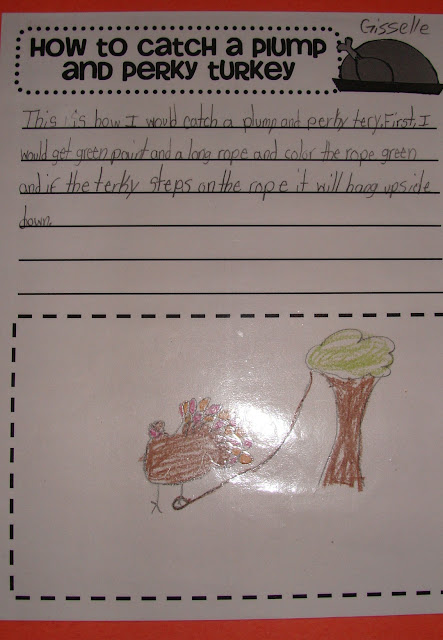 Gisselle
How to catch a plump
and perky turkey
This is how I would catch a plump and perky tery. First, I
would get green paint and a long rope and color the rope green
and if the terky steps on the rope it will hang upside
down.